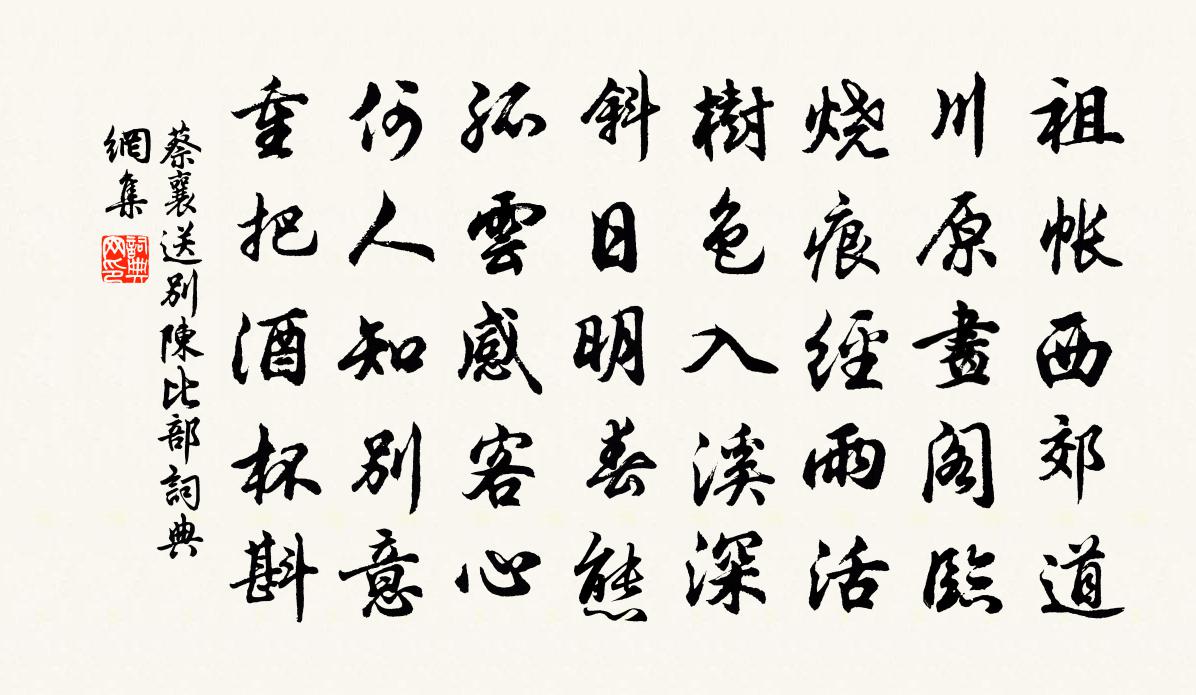 祖帳西郊道
川原畫閣臨
燒痕經雨活
樹色入溪深
斜日明春態
孤雲感客心
何人知別意
重把酒杯斟
蔡襄送別陳比部詞典
網集
詞典
网印